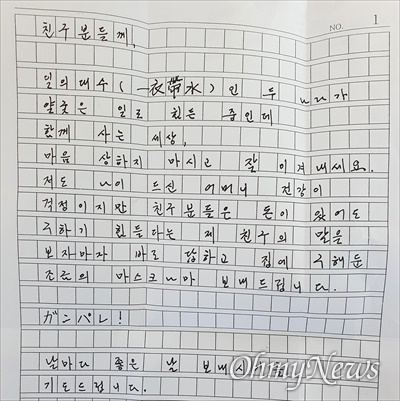 NO. 1
친구분들께,
일의대수(一衣帶水)인 두 나라가
얄궂은 일로 힘든 중인데
함께 사는 세상,
마음 상하지 마시고 잘 이겨내세요.
저도 나이 드신 어머니 건강이
걱정이지만 친구분들은 돈이 있어도
구하기 힘들다는 제 친구의 말을
보자마자 바로 답하고 집에 구해둔
조금의 마스크나마 보내드립니다.
ガンバレ!
날마다 좋은 날 보내시
기도드립니다.
OhmyNews